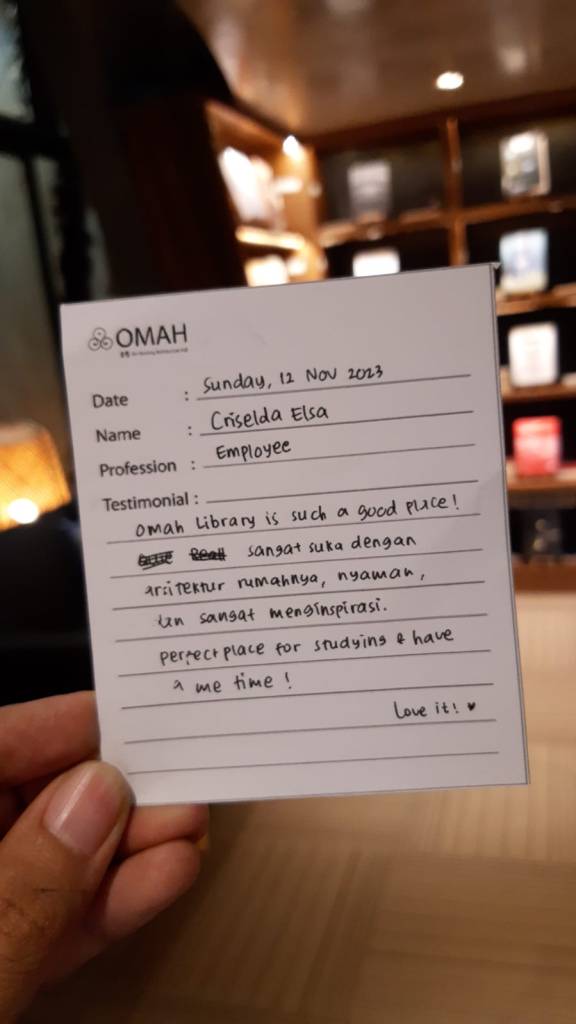 OMAH
Date : Sunday, 12 Nov 2023
Name : Criselda Elsa
Profession : Employee
Testimonial :
Omah Library is such a good place!
sangat suka dengan
arsitektur rumahnya, nyaman,
dan sangat menginspirasi.
perfect place for studying & have
a me time!
Love it! ♥